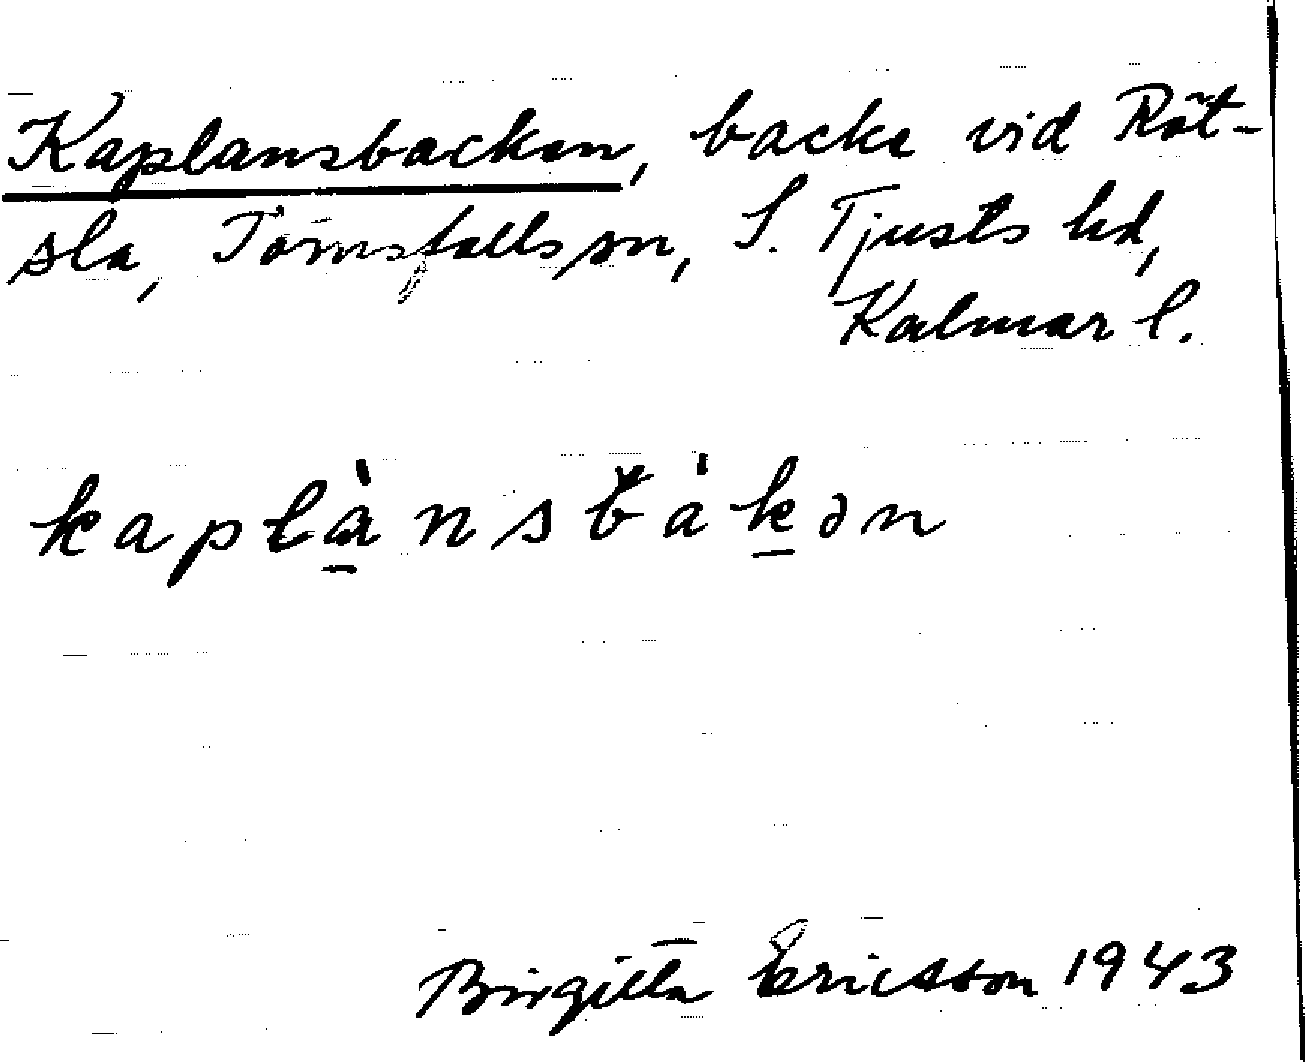 Kaplansbacken, backe vid Röt-
sla, Törnsfalls sn, S. Tjusts hd,
Kalmar l.
kaplànsbákən
Birgitta Ericsson 1943